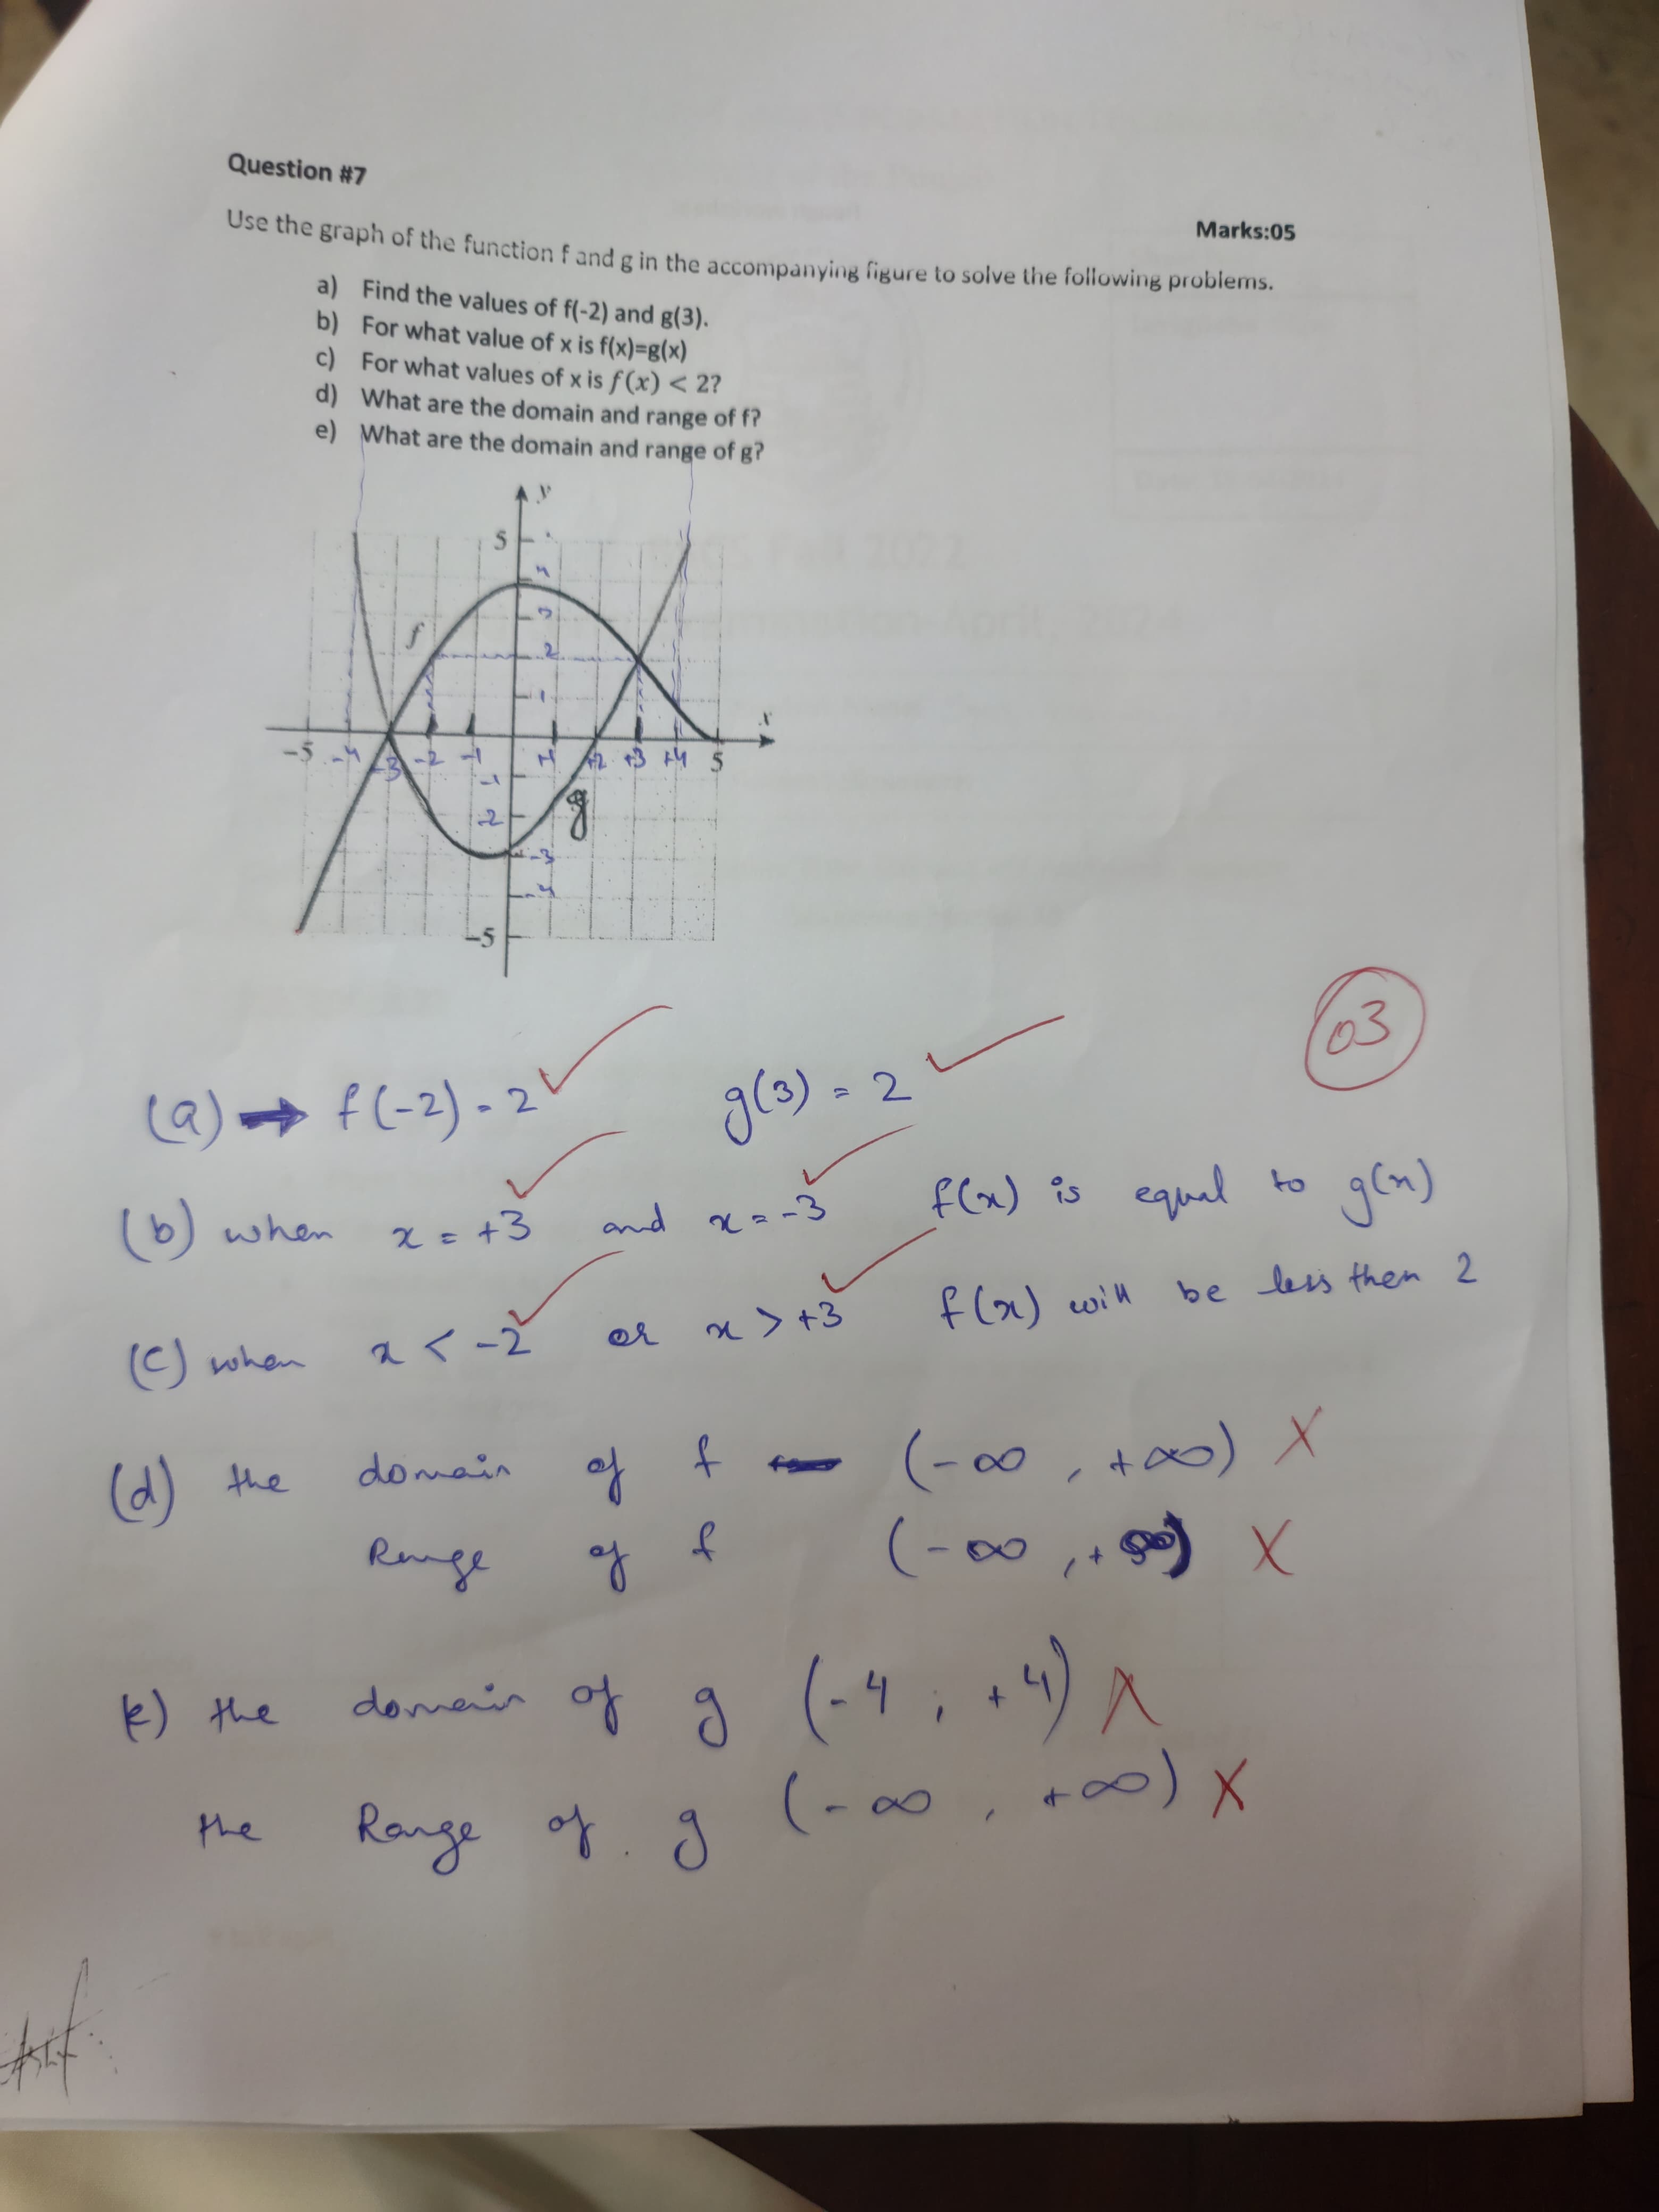 Question #7
Marks:05
Use the graph of the function f and g in the accompanying figure to solve the following problems.
a) Find the values of f(-2) and g(3).
b) For what value of x is f(x)=g(x)
c) For what values of x is f(x) < 2?
d) What are the domain and range of f?
e) What are the domain and range of g?
y
5
4
3
f
2
1
x
-5 -4 -3 -2 -1 +1 +2 +3 +4 5
-1
g
-2
-3
-4
-5
03
(a) → f(-2) = 2 g(3) = 2
(b) when x = +3 and x = -3 f(x) is equal to g(x)
(c) when x < -2 or x > +3 f(x) will be less then 2
(d) the domain of f (-∞ , +∞)
Range of f (-∞ , +∞)
e) the domain of g (-4 , +4)
the Range of g (-∞ , +∞)